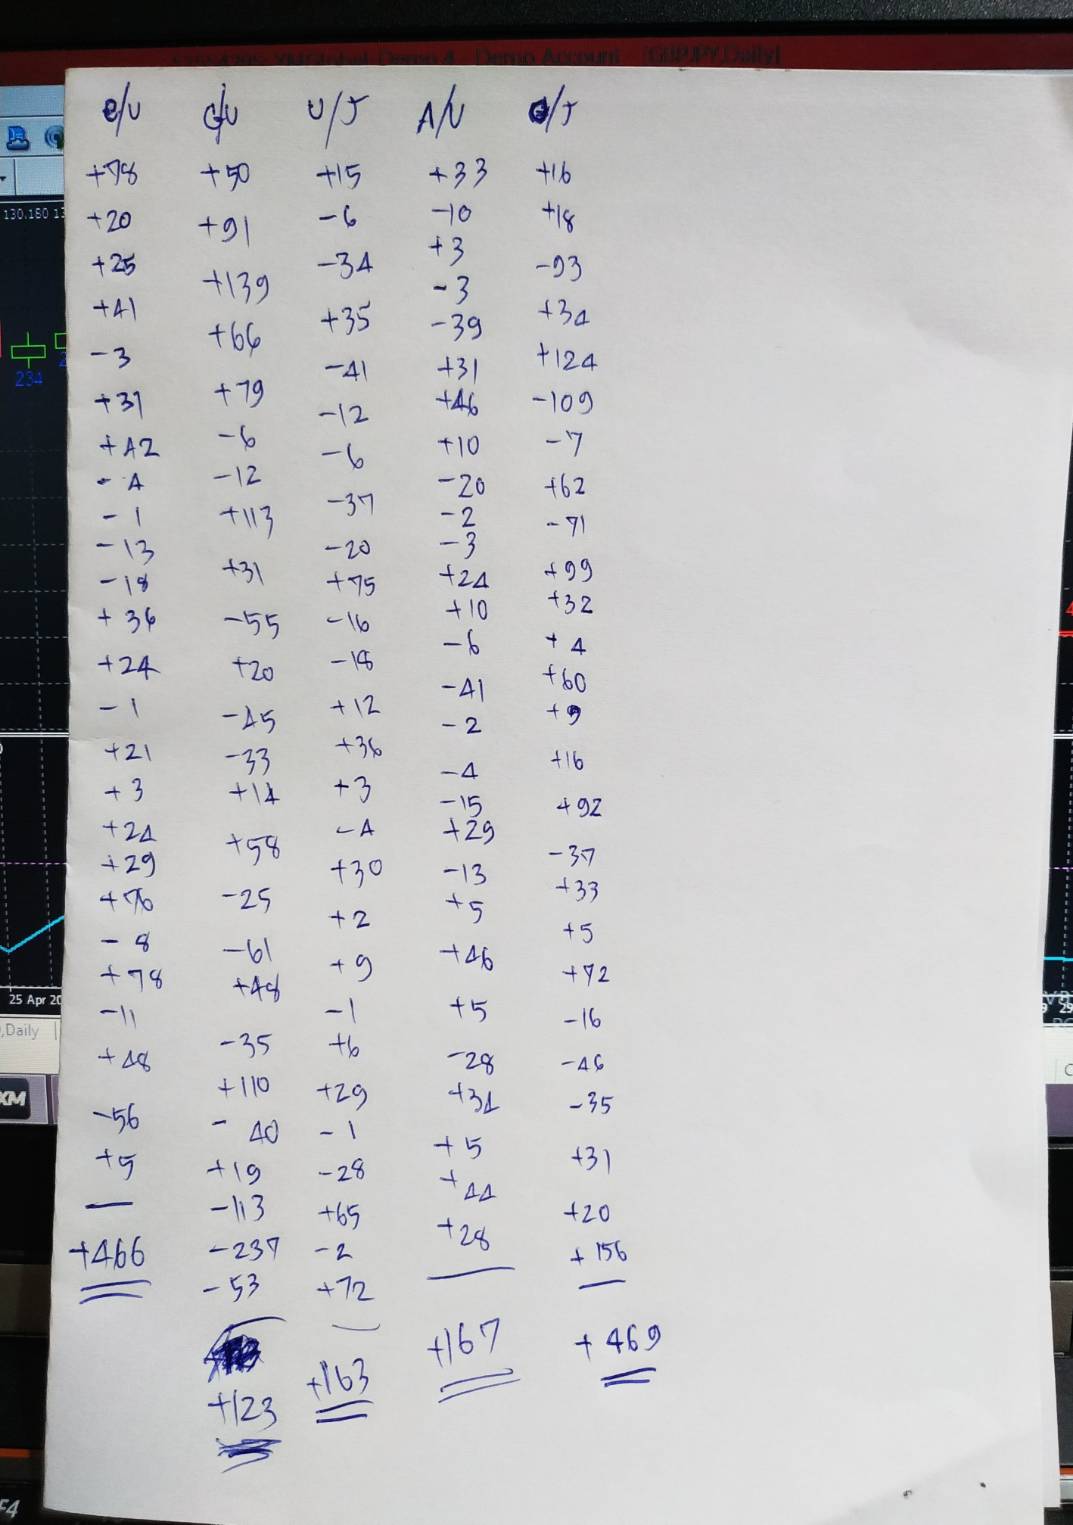 Demo Account [GBPJPY,Daily]
e/u G/U U/J A/U G/J
+78 +50 +15 +33 +16
+20 +91 -6 -10 +18
+25 +139 -34 +3 -93
+41 +66 +35 -3 +34
-3 +79 -41 -39 +124
+31 -6 -12 +31 -109
+42 -12 -6 +46 -7
-4 +113 -37 +10 +62
-1 +31 -20 -20 -71
-13 -55 +75 -2 +99
-18 +20 -16 -3 +32
+36 -45 -18 +24 +4
+24 -33 +12 +10 +60
-1 +14 +36 -6 +9
+21 +58 +3 -41 +16
+3 -25 -4 -2 +92
+24 -61 +30 -4 -37
+29 +48 +2 -15 +33
+76 -35 +9 +29 +5
-8 +110 -1 -13 +72
+78 -40 +6 +5 -16
-11 +19 +29 +46 -46
+48 -113 -1 +5 -35
-56 -237 -28 -28 +31
+5 -53 +65 +34 +20
+466 +123 -2 +5 +156
+72 +44 +469
+163 +28
+167
130.160
234
25 Apr 20
,Daily
XM
F4